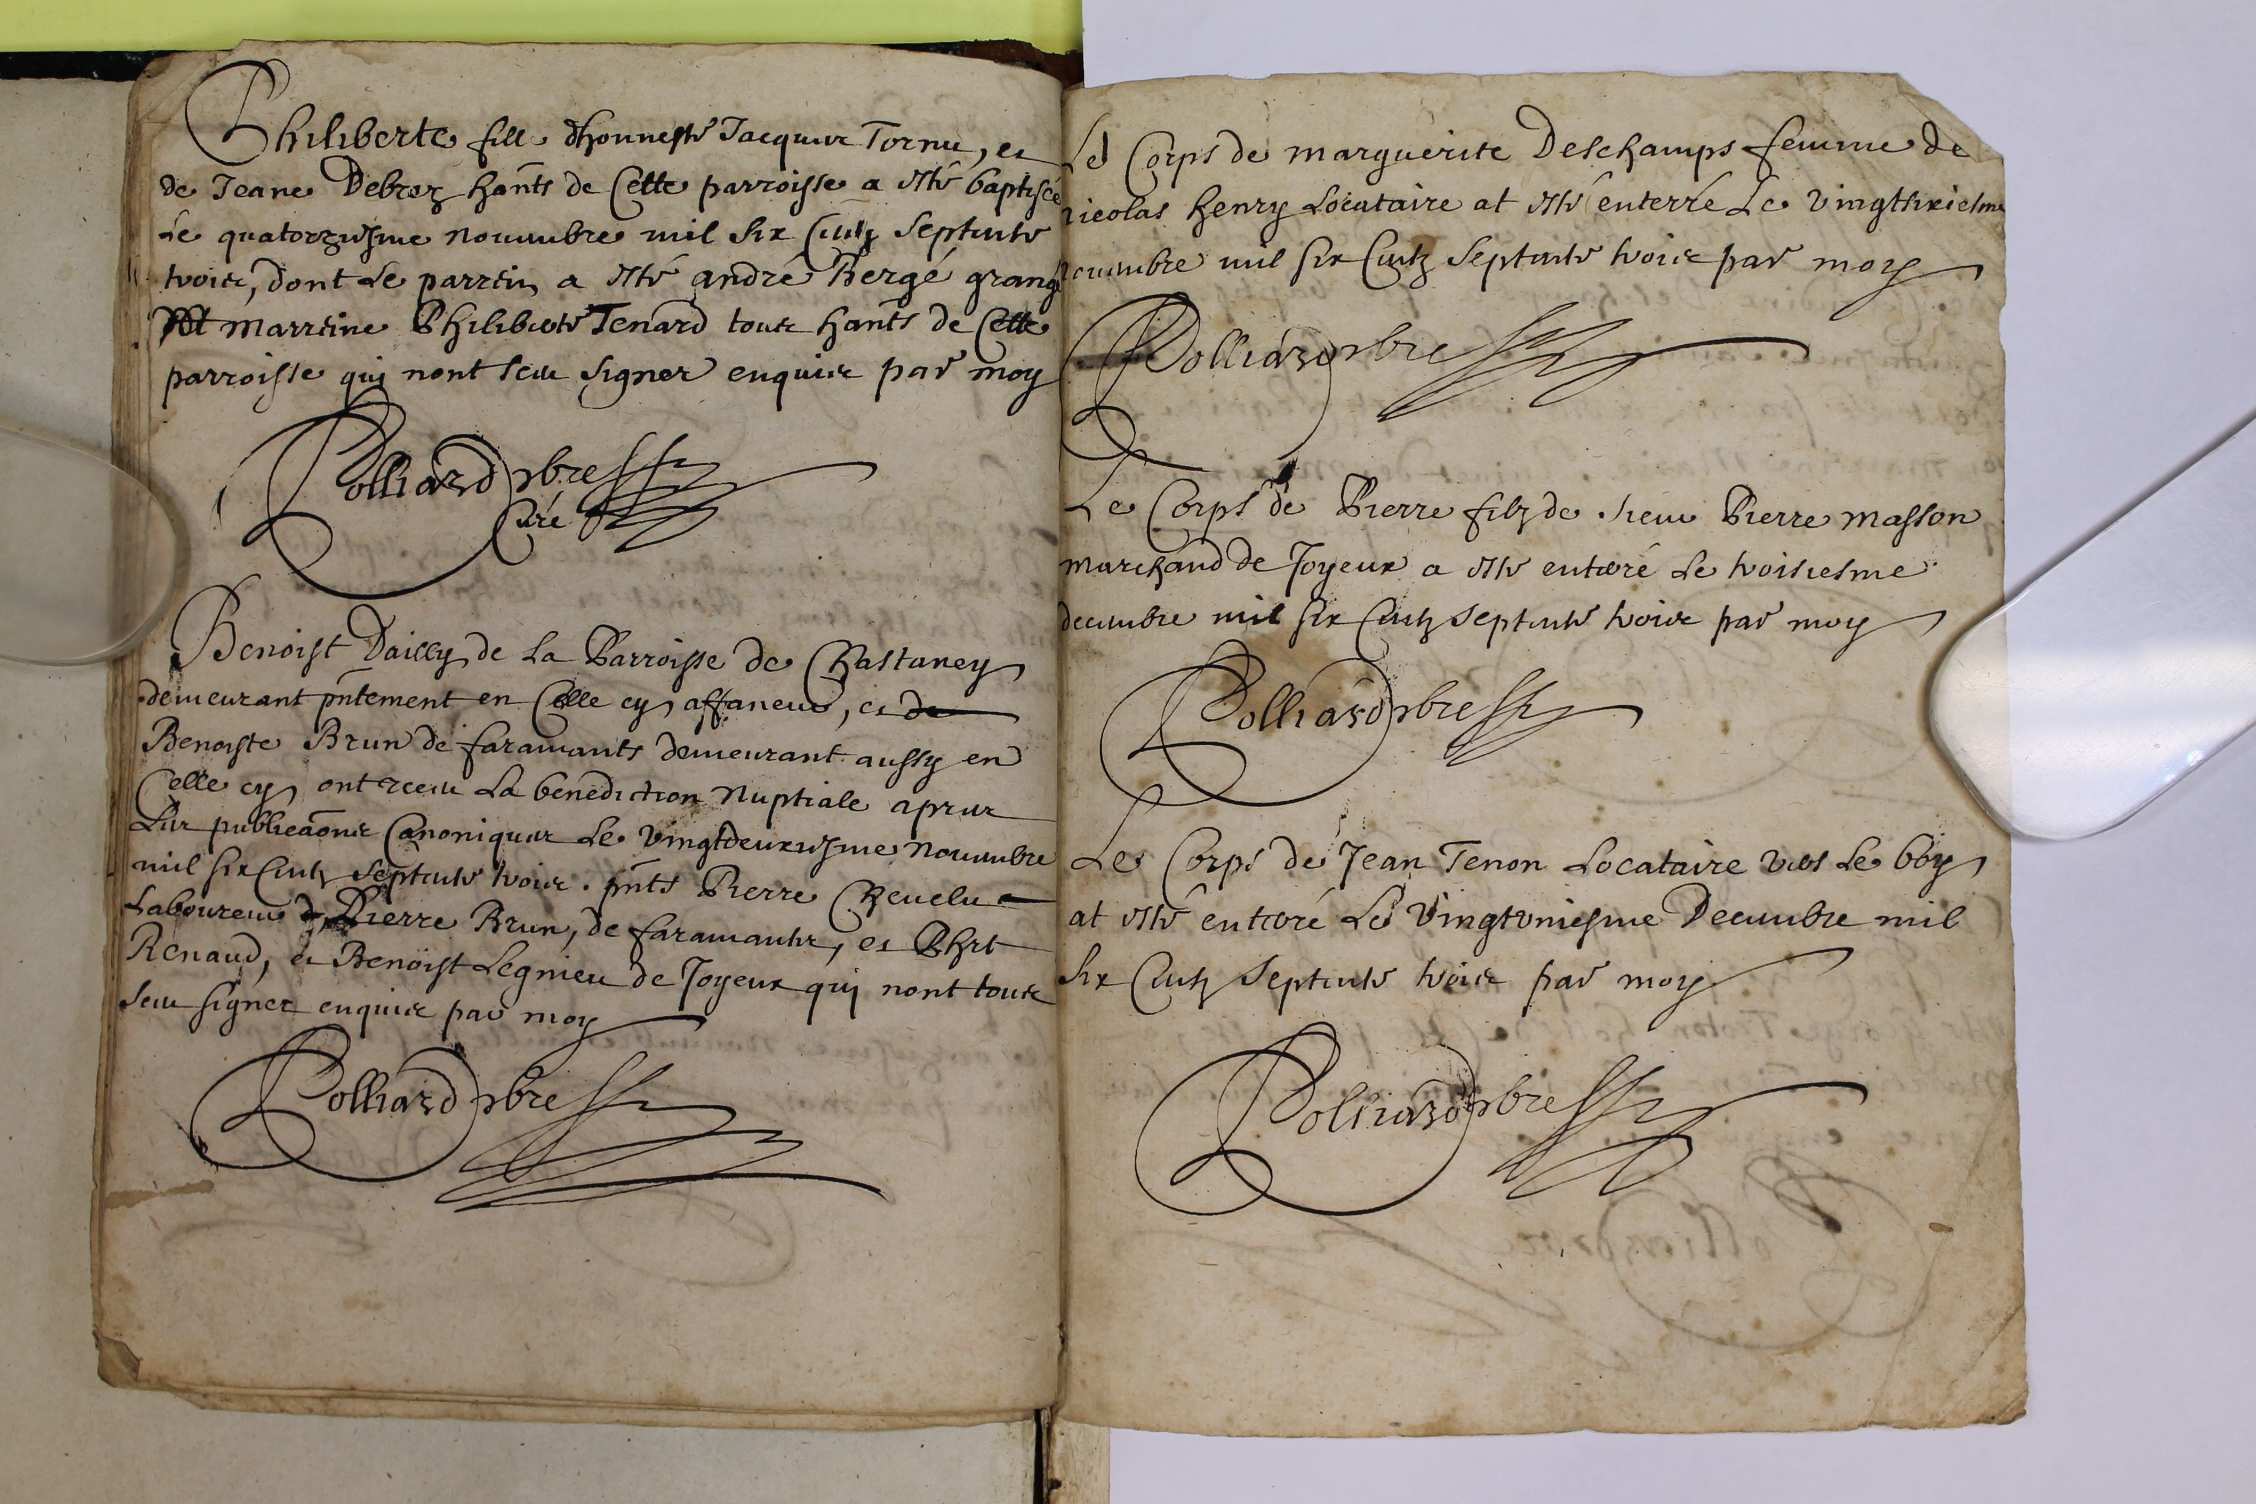 Philiberte fille dhonneste Jacques Tornu, et
de Jeane Debroz hants de Cette parroisse a esté baptisée
Le quatorziesme nouembre mil six Centz septente
trois, dont Le parrein a esté andré Bergé grang
Et marreine Philiberte Tenard tous hants de Cette
parroisse qui nont sceu signer enquis par moy
Rolliard pbre
Curé
Benoist Dailly de La Parroisse de Chastaney
demeurant pntement en Celle cy affaneur, et de
Benoiste Brun de faramants demeurant aussy en
Celle cy ont receu La benediction Nuptiale apres
Leur publicaons Canoniques Le vingtdeuxiesme nouembre
mil six Centz septente trois. pnts Pierre Cheuelu
Laboureur Pierre Brun, de faramants, et Phet
Renaud, et Benoist Legnieu de Joyeux qui nont tous
sceu signer enquis par moy
Rolliard pbre
Le Corps de marguerite Deschamps femme de
nicolas henry Locataire at esté enterré Le vingtsixiesme
nouembre mil six Centz septente trois par moy
Rolliard pbre
Le Corps de Pierre filz de sieur Pierre masson
marchand de Joyeux a esté enterré Le troisiesme
decembre mil six Centz septente trois par moy
Rolliard pbre
Le Corps de Jean Tenon Locataire vers Le boy
at esté enterré Le vingtvniesme Decembre mil
six Centz septente trois par moy
Rolliard pbre